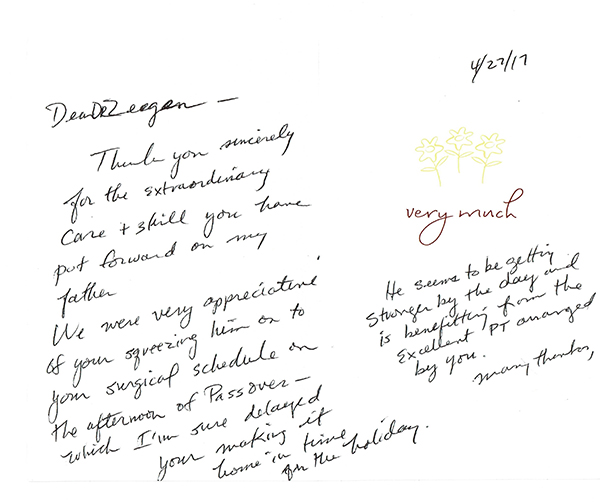 4/27/17
Dear Dr Zeegen –
Thank you sincerely
for the extraordinary
care + skill you have
put forward on my
father
We were very appreciative
of your squeezing him on to
your surgical schedule on
the afternoon of Passover –
which I'm sure delayed
your making it
home in time
for the holiday.
very much
He seems to be getting
stronger by the day and
is benefitting from the
excellent PT arranged
by you.
many thanks,